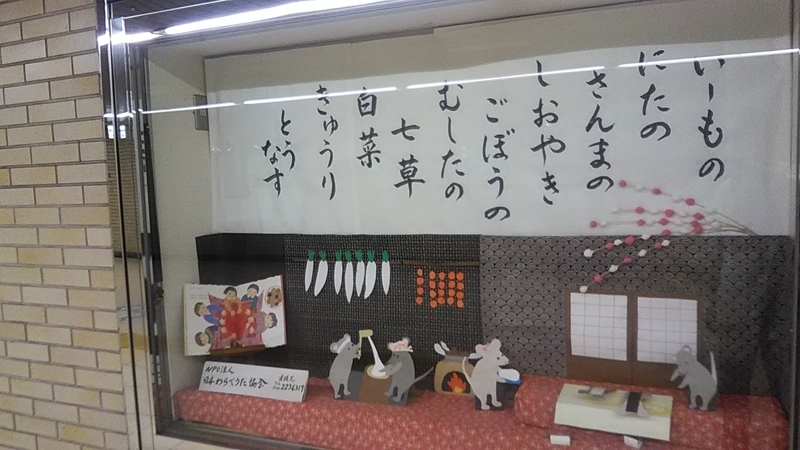 いーもの
にたの
さんまの
しおやき
ごぼうの
むしたの
七草
白菜
きゅうり
とうなす
NPO法人
日本わらべうた協会
2236317